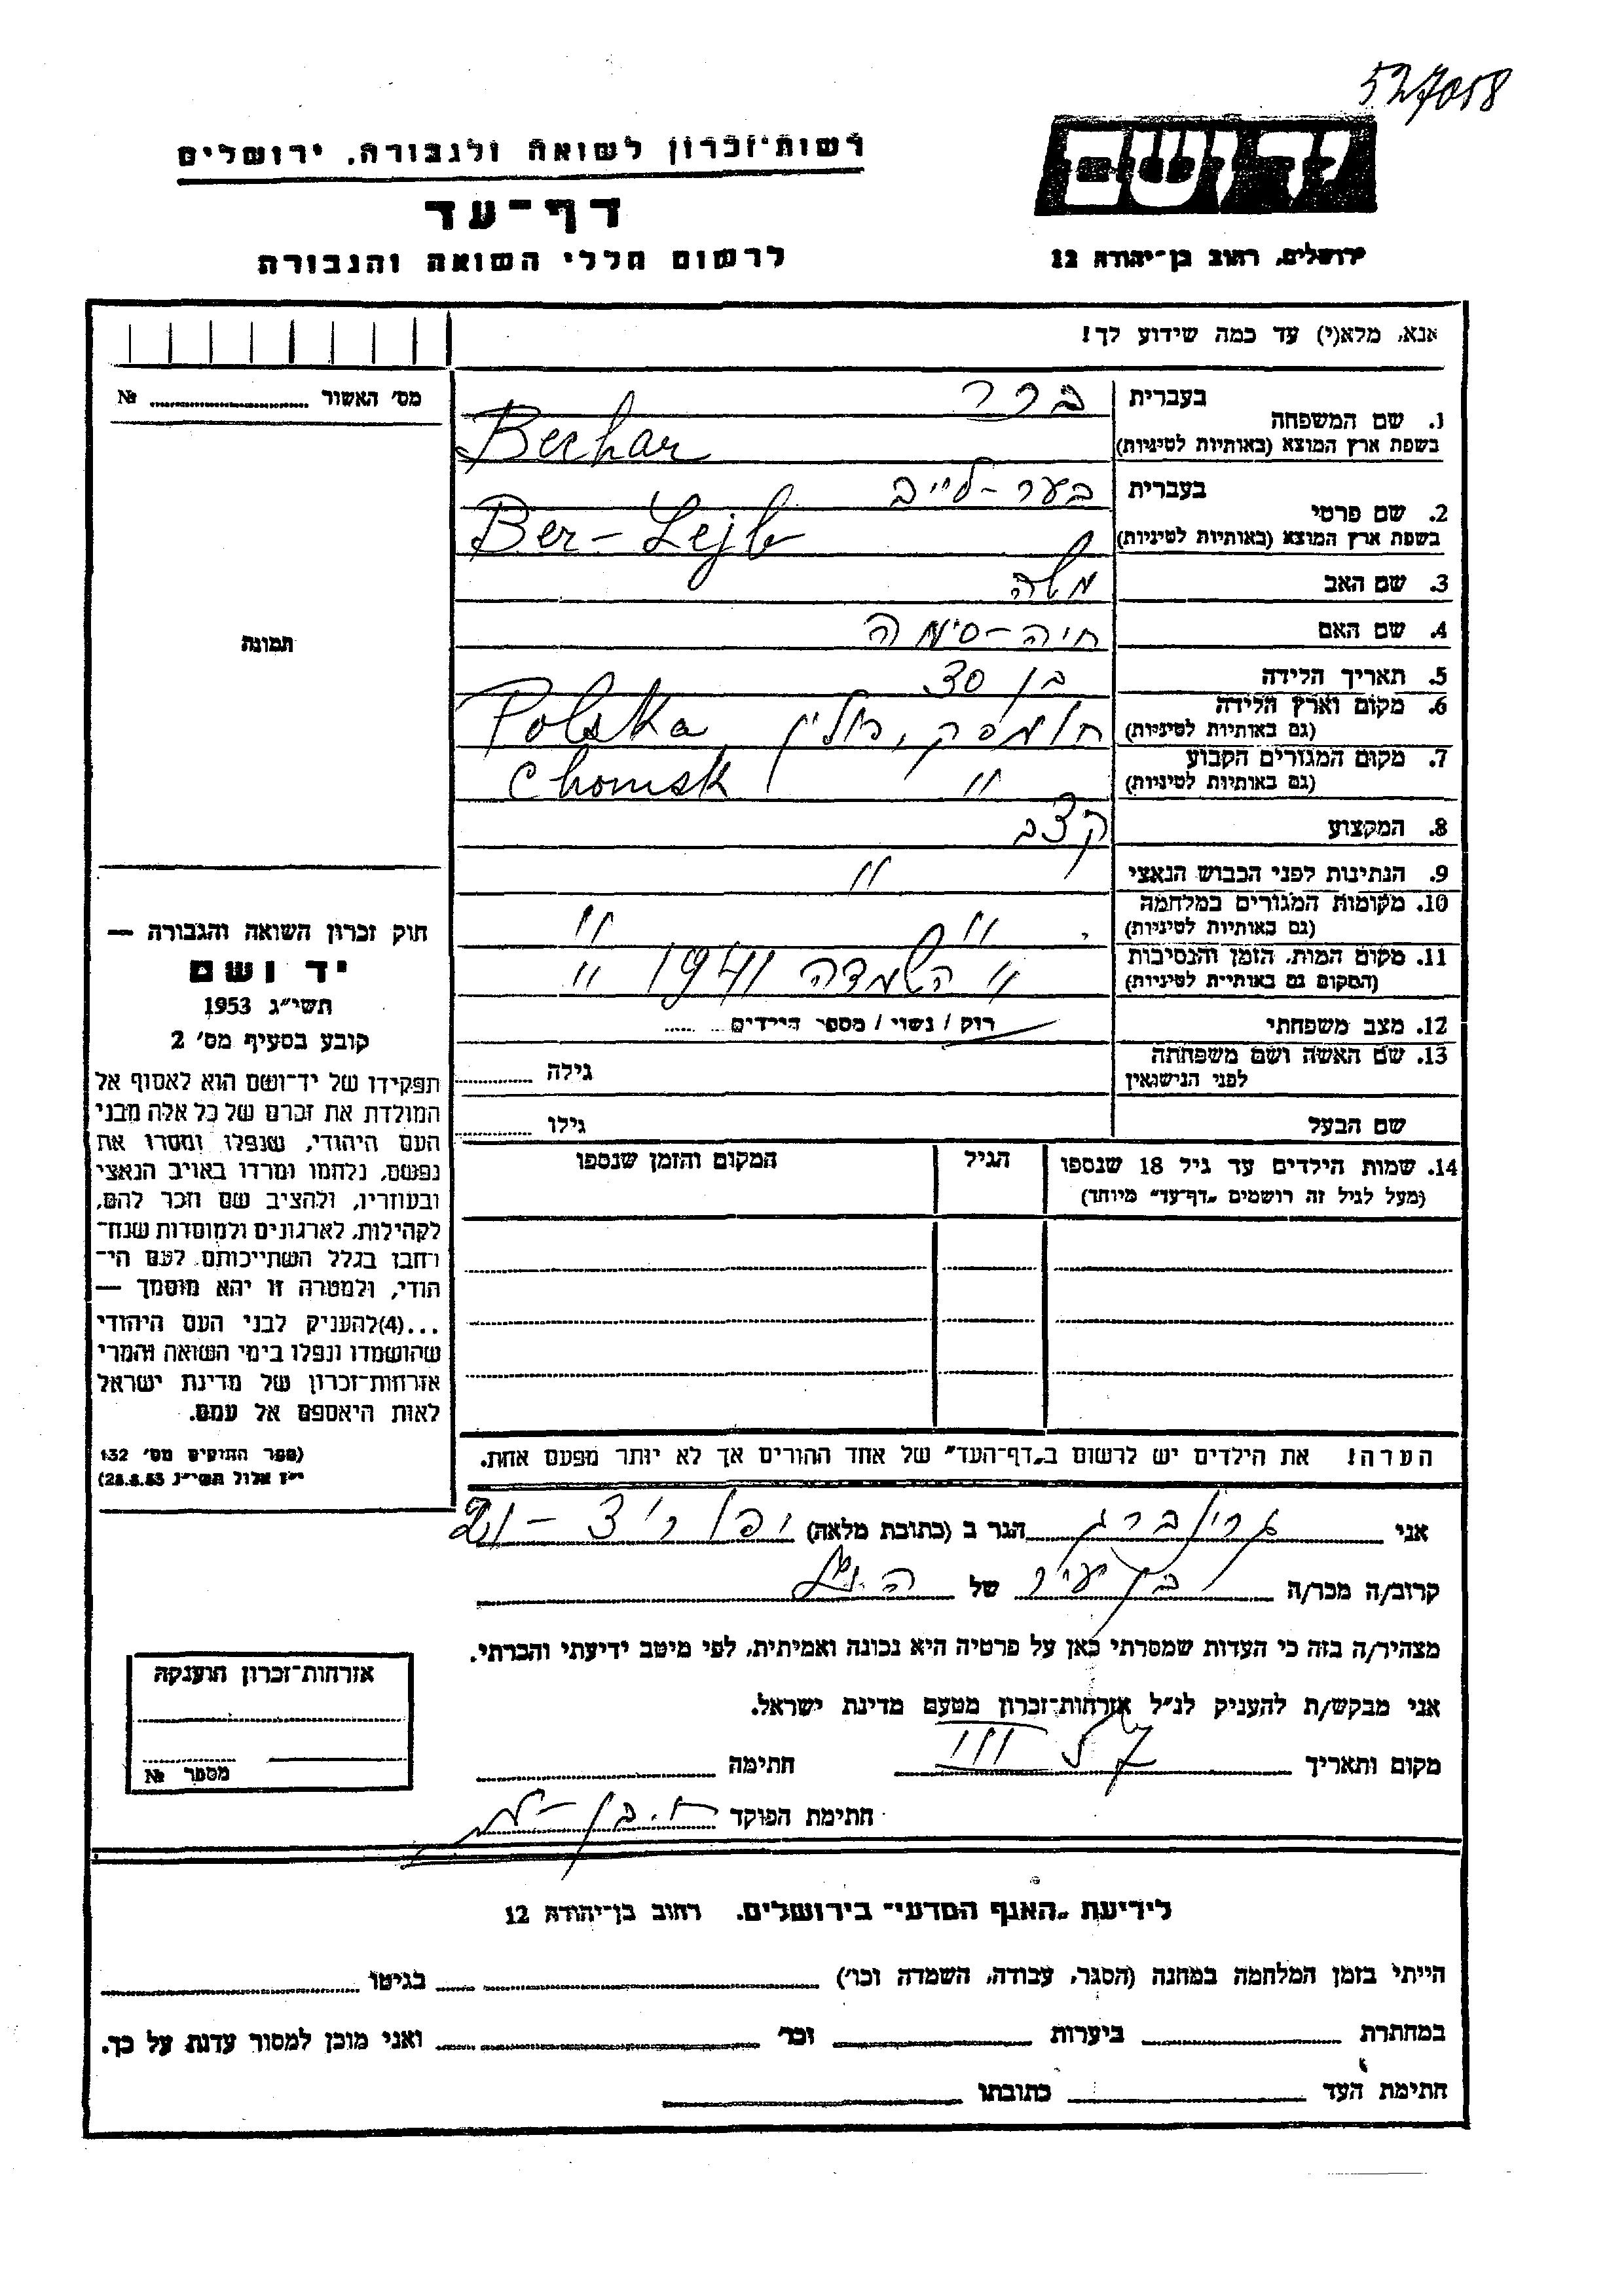 527058
יד ושם
רשות־זכרון לשואה ולגבורה, ירושלים
ירושלים, רחוב בן־יהודה 12
דף־עד
לרשום חללי השואה והגבורה
אנא, מלא(י) עד כמה שידוע לך!
מס׳ האשור №
1. שם המשפחה
בעברית
בשפת ארץ המוצא (באותיות לטיניות) Bechar
2. שם פרטי
בעברית בער-לייב
בשפת ארץ המוצא (באותיות לטיניות) Ber-Lejb
3. שם האב משה
4. שם האם חיה-סימה
5. תאריך הלידה בן 30
6. מקום וארץ הלידה
(גם באותיות לטיניות) חומסק, פולין Polska
7. מקום המגורים הקבוע
(גם באותיות לטיניות) " Chomsk
8. המקצוע קצב
9. הנתינות לפני הכבוש הנאצי "
10. מקומות המגורים במלחמה
(גם באותיות לטיניות) " "
11. מקום המות, הזמן והנסיבות
(המקום גם באותיות לטיניות) " השמדה 1941 "
12. מצב משפחתי רוק / נשוי / מספר הילדים
13. שם האשה ושם משפחתה
לפני הנישואין גילה
שם הבעל גילו
תמונה
חוק זכרון השואה והגבורה —
יד ושם
תשי״ג 1953
קובע בסעיף מס׳ 2
תפקידו של יד־ושם הוא לאסוף אל
המולדת את זכרם של כל אלה מבני
העם היהודי, שנפלו ומסרו את
נפשם, נלחמו ומרדו באויב הנאצי
ובעוזריו, ולהציב שם וזכר להם,
לקהילות, לארגונים ולמוסדות שנח־
רבו בגלל השתייכותם לעם הי־
הודי, ולמטרה זו יהא מוסמך —
...(4)להעניק לבני העם היהודי
שהושמדו ונפלו בימי השואה והמרי
אזרחות־זכרון של מדינת ישראל
לאות היאספם אל עמם.
(ספר החוקים מס׳ 132
י״ז אלול תשי״ג 28.8.53)
14. שמות הילדים עד גיל 18 שנספו
(מעל לגיל זה רושמים „דף־עד״ מיוחד)
הגיל
המקום והזמן שנספו
הערה! את הילדים יש לרשום ב„דף־העד״ של אחד ההורים אך לא יותר מפעם אחת.
אני גרינברג הגר ב (כתובת מלאה)
קרוב/ה מכר/ה בן עיר של
מצהיר/ה בזה כי העדות שמסרתי כאן על פרטיה היא נכונה ואמיתית, לפי מיטב ידיעתי והכרתי.
אני מבקש/ת להעניק לנ״ל אזרחות־זכרון מטעם מדינת ישראל.
מקום ותאריך חתימה
חתימת הפוקד
אזרחות־זכרון הוענקה
מספר №
לידיעת „האגף המדעי״ בירושלים, רחוב בן־יהודה 12
הייתי בזמן המלחמה במחנה (הסגר, עבודה, השמדה וכו׳) בגיטו
במחתרת ביערות וכו׳ ואני מוכן למסור עדות על כך.
חתימת העד כתובתו